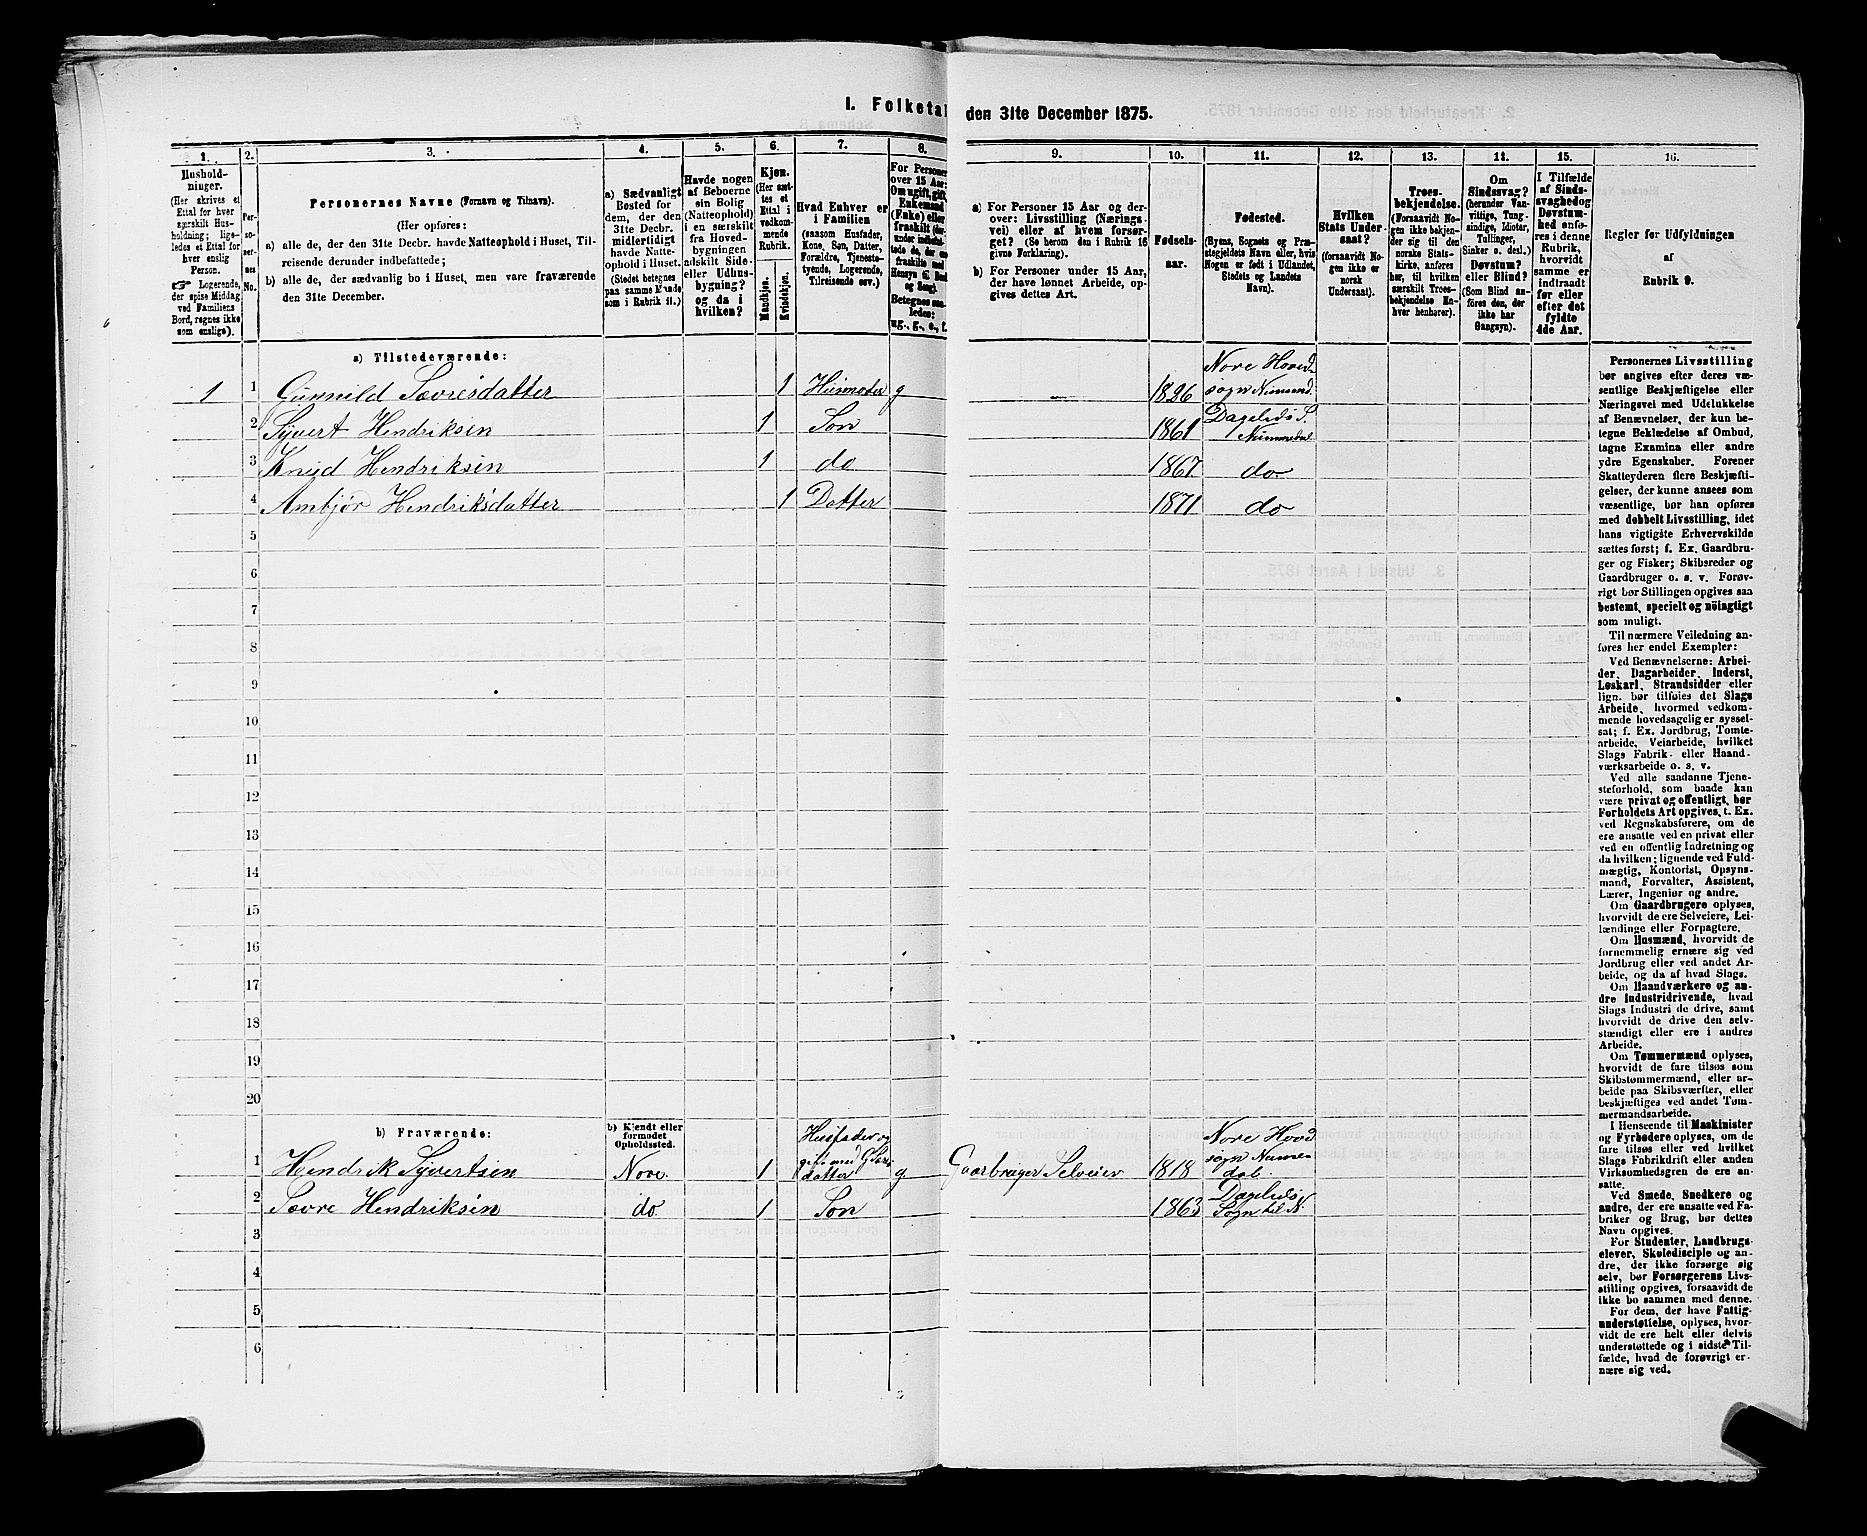 I. Folketal
den 31te December 1875.
1.
Hushold-
ninger.
(Her skrives et
Ettal for hver
særskilt Hus-
holdning; lige-
ledes et Ettal for
hver enslig
Person.
☞ Logerende,
der spise Middag
ved Familiens
Bord, regnes ikke
som enslige).
2.
Per-
so-
ner-
nes
No.
3.
Personernes Navne (Fornavn og Tilnavn).
(Her opføres:
a) alle de, der den 31te Decbr. havde Natteophold i Huset, Til-
reisende derunder indbefattede;
b) alle de, der sædvanlig bo i Huset, men vare fraværende
den 31te December.
4.
a) Sædvanligt
Bosted for
dem, der den
31te Decbr.
midlertidigt
havde Natte-
ophold i Huset.
(Stedet betegnes
paa samme Maade
som i Rubrik 11.)
5.
Havde nogen
af Beboerne
sin Bolig
(Natteophold)
i en særskilt
fra Hoved-
bygningen
adskilt Side-
eller Udhus-
bygning?
og da i
hvilken?
6.
Kjøn.
(Her sæt-
tes et
Ettal i
vedkom-
mende
Rubrik.
Mandkjøn.
Kvindekjøn.
7.
Hvad Enhver er
i Familien
(saasom Husfader,
Kone, Søn, Datter,
Forældre, Tjeneste-
tyende, Logerende,
Tilreisende osv.)
8.
For Personer
over 15 Aar:
Om ugift, gift,
Enkemand
(Enke) eller
fraskilt
Betegnes saa-
ledes:
ug., g., e., f.
9.
a) For Personer 15 Aar og der-
over: Livsstilling (Nærings-
vei) eller af hvem forsør-
get? (Se herom den i Rubrik 16
givne Forklaring).
b) For Personer under 15 Aar,
der have lønnet Arbeide, op-
gives dettes Art.
10.
Fødsels-
aar.
11.
Fødested.
(Byens, Sognets og Præ-
stegjeldets Navn eller, hvis
Nogen er født i Udlandet,
Stedets og Landets
Navn).
12.
Hvilken
Stats Under-
saat?
(forsaavidt No-
gen ikke er
norsk
Undersaat).
13.
Troes-
bekjendelse.
(Forsaavidt No-
gen ikke bekjen-
der sig til den
norske Stats-
kirke, anføres
her, til hvilken
Troesbekjendelse En-
hver henhører).
14.
Om
Sindssvag?
(herunder Van-
vittige, Tung-
sindige, Idioter,
Tullinger,
Sinker o. desl.)
Døvstum?
eller Blind?
(Som Blind an-
føres den, der
ikke har
Gangsyn).
15.
I Tilfælde
af Sinds-
svaghed og
Døvstum-
hed anfø-
res i denne
Rubrik,
hvorvidt
samme er
indtraadt
før eller
efter det
fyldte
4de Aar.
16.
Regler for Udfyldningen
af
Rubrik 9.
a) Tilstedeværende:
1 1 Gunnild Sævresdatter 1 Husmoder g 1826 Nore Hoved-
sogn Numed.
2 Syvert Hendriksen 1 Søn 1861 Dagelids S.
Nummedal
3 Knud Hendriksen 1 do 1867 do
4 Ambjør Hendriksdatter 1 Datter 1871 do
5
6
7
8
9
10
11
12
13
14
15
16
17
18
19
20
b) Fraværende:
b) Kjendt eller
formodet
Opholdssted.
1 Hendrik Syvertsen Nore 1 Husfader og
gift med G
datter g Gaarbruger Selveier 1818 Nore Hovd
sogn Nume-
dal.
2 Sævre Hendriksen do 1 Søn 1863 Dagelids
Sogn til N.
3
4
5
6
Personernes Livsstilling
bør angives efter deres væ-
sentlige Beskjæftigelse eller
Næringsvei med Udelukkelse
af Benævnelser, der kun be-
tegne Beklædelse af Ombud,
tagne Examina eller andre
ydre Egenskaber. Forener
Skatteyderen flere Beskjæfti-
gelser, der kunne ansees som
væsentlige, bør han opføres
med dobbelt Livsstilling, idet
hans vigtigste Erhvervskilde
sættes først; f. Ex. Gaardbru-
ger og Fisker; Skibsreder og
Gaardbruger o. s. v. Forøv-
rigt bør Stillingen opgives saa
bestemt, specielt og nøiagtigt
som muligt.
Til nærmere Veiledning an-
føres her endel Exempler:
Ved Benævnelserne: Arbei-
der, Dagarbeider, Inderst,
Løskarl, Strandsidder eller
lign. bør tilføies det Slags
Arbeide, hvormed vedkom-
mende hovedsagelig er syssel-
sat; f. Ex. Jordbrug, Tomte-
arbeide, Veiarbeide, hvilket
Slags Fabrik- eller Haand-
værksarbeide o. s. v.
Ved alle saadanne Tjene-
steforhold, som baade kan
være privat og offentligt, bør
Forholdets Art opgives, t. Ex.
ved Regnskabsførere, om de
ere ansatte ved en privat eller
ved en offentlig Indretning og
da hvilken; lignende ved Fuld-
mægtig, Kontorist, Opsyns-
mand, Forvalter, Assistent,
Lærer, Ingeniør og andre.
Om Gaardbrugere oplyses,
hvorvidt de ere Selveiere, Lei-
lændinge eller Forpagtere.
Om Husmænd, hvorvidt de
fornemmelig ernære sig ved
Jordbrug eller ved andet Ar-
beide, og da af hvad Slags.
Om Haandværkere og an-
dre Industridrivende, hvad
Slags Industri de drive, samt
hvorvidt de drive den selv-
stændigt eller ere i andres
Arbeide.
Om Tømmermænd oplyses,
hvorvidt de fare tilsøs som
Skibstømmermænd, eller ar-
beide paa Skibsværfter, eller
beskjæftiges ved andet Tøm-
mermandsarbeide.
I Henseende til Maskinister
og Fyrbødere oplyses, om de
fare tilsøs eller ved hvilket
Slags Fabrikdrift eller anden
Virksomhedsgren de ere an-
satte.
Ved Smede, Snedkere og
andre, der ere ansatte ved Fa-
briker og Brug, bør dettes
Navn opgives.
For Studenter, Landbrugs-
elever, Skoledisciple og an-
dre, der ikke forsørge sig
selv, bør Forsørgerens Livs-
stilling opgives, forsaavidt de
ikke bo sammen med denne.
For dem, der have Fattig-
understøttelse, oplyses, hvor-
vidt de ere helt eller delvis
understøttede og i sidste Til-
fælde, hvad de forøvrigt er-
nære sig ved.